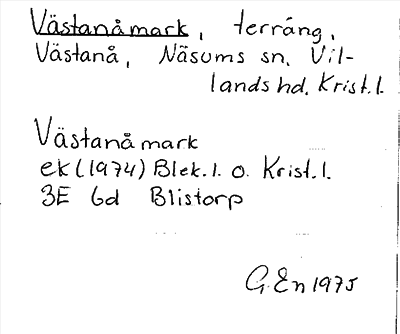 Västanåmark, terräng,
Västanå, Näsums sn, Vil-
lands hd, Krist.l.
Västanåmark
ek (1974) Blek.l. o. Krist.l.
3E 6d Blistorp
G.En 1975